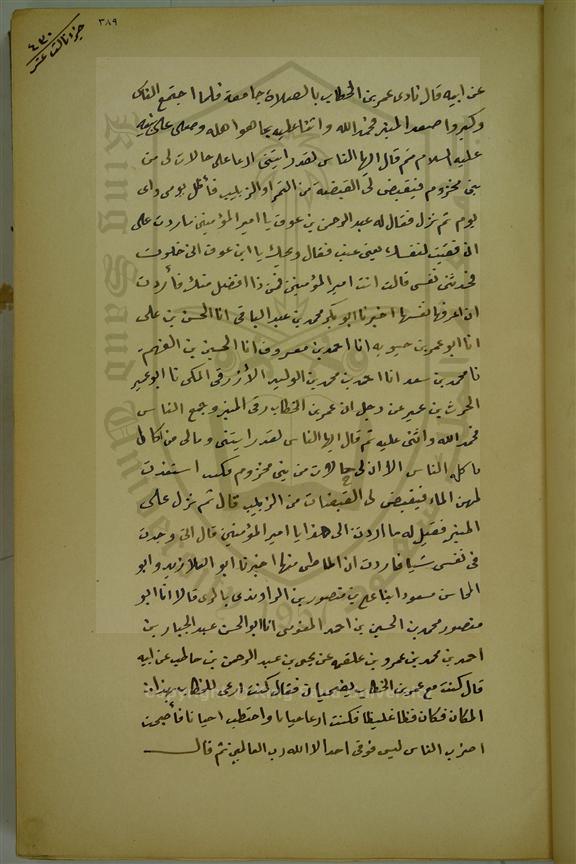 ٣٨٩
٤٣٠
جزء ثالث عشر
عن ابيه قال نادى عمر بن الخطاب بالصلاة جامعة فلما اجتمع الناس
وكبروا صعد المنبر فحمد الله واثنا عليه بما هو اهله وصلى على نبيه
عليه السلام ثم قال ايها الناس لقد رايتني ارعا على خالات لي من
بني مخزوم فيقبض لي القبضة من التمر او الزبيب فأظل يومي واى
يوم ثم نزل فقال له عبد الرحمن بن عوف يا امير المؤمنين ما زدت على
ان قميت نفسك يعني عبت فقال ويحك يا ابن عوف اني خلوت
فحدثتني نفسي قالت انت امير المؤمنين فمن ذا افضل منك فأردت
ان اعرفها نفسها اخبرنا ابو بكر محمد بن عبد الباقي انا الحسن بن علي
انا ابو عمر بن حيويه انا احمد بن معروف انا الحسين بن الفهم
نا محمد بن سعد انا احمد بن محمد بن الوليد الأزرقي المكي نا ابو عمير
الحرث بن عمير عن رجل ان عمر بن الخطاب رقى المنبر وجمع الناس
فحمد الله واثنى عليه ثم قال ايها الناس لقد رايتني ومالي من اكال
ياكله الناس الا ان لي خالات من بني مخزوم فكنت استعذب
لهن الماء فيقبضن لي القبضات من الزبيب قال ثم نزل على
المنبر فقيل له ما اردت الى هذا يا امير المؤمنين قال اني وجدت
في نفسي شيا فاردت ان اطاطي منها اخبرنا ابو العلا زيد وابو
المحاسن مسعود ابنا علي بن منصور بن الراوندي بالري قالا انا ابو
منصور محمد بن الحسين بن احمد المقومي انا ابو الحسن عبد الجبار بن
احمد بن محمد بن عمرو بن علقمة عن يحيى بن عبد الرحمن بن حاطب عن ابيه
قال كنت مع عمر بن الخطاب بضجنان فقال كنت ارعى للخطاب بهذا
المكان فكان فظا غليظا فكنت ارعا احيانا واحتطب احيانا فأصبحت
اضرب الناس ليس فوقي احد الا الله رب العالمين ثم قال